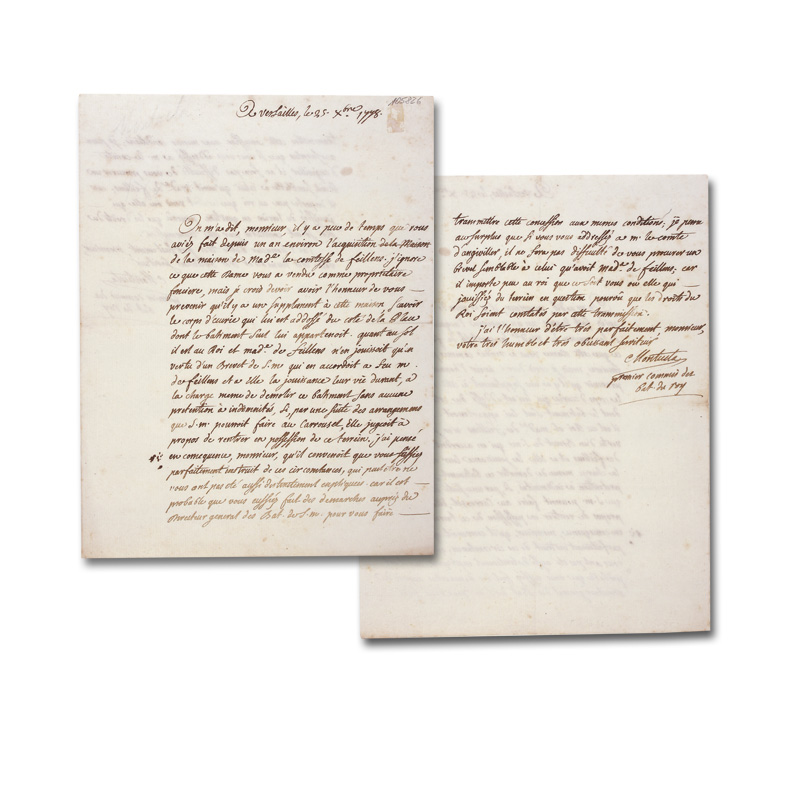 105826
De versailles, le 25. Xbre 1778.
On m'a dit, monsieur, il y a peu de temps que vous
aviés fait depuis un an environ l'acquisition de la Maison
de la maison de Mad.e la comtesse de feillens. j'ignore
ce que cette Dame vous a vendu comme proprietaire
fonciere, mais je crois devoir avoir l'honneur de vous
prevenir qu'il y a un supplement à cette maison, savoir
le corps d'ecurie qui lui est addossé du coté de la Place
dont le batiment seul lui appartenoit. quant au sol
il est au Roi et mad.e de feillens n'en jouissoit qu'en
vertu d'un Brevet de S. m. qui en accordoit a feu m.
de feillens et a elle la jouissance leur vie durant, a
la charge meme de demolir ce batiment sans aucune
pretention à indemnités, Si, par une suite des arrangemens
que S. m. pourroit faire au Carrousel, Elle jugeoit à
propos de rentrer en possession de ce terrein. j'ai pensé
en consequence, monsieur, qu'il convenoit que vous fussiés
parfaitement instruit de ces circonstances, qui peut etre ne
vous ont pas eté aussi distinctement expliquées. car il est
probable que vous eussiés fait des demarches auprès du
Directeur general des Bat. de S. m. pour vous faire
transmettre cette concession aux memes conditions, je pense
au surplus que si vous vous addressés a m. le comte
d'angiviller, il ne fera pas difficulté de vous procurer un
Brevet semblable à celui qu'avoit Mad.e de feillens. car
il importe peu au roi que ce soit vous ou elle qui
jouissiés du terrein en question pourvû que les droits du
Roi soient constatés par cette transmission.
j'ai l'honneur d'être très parfaitement, monsieur,
votre très humble et très obeissant serviteur
Montucla
premier commis des
Bat. du roy